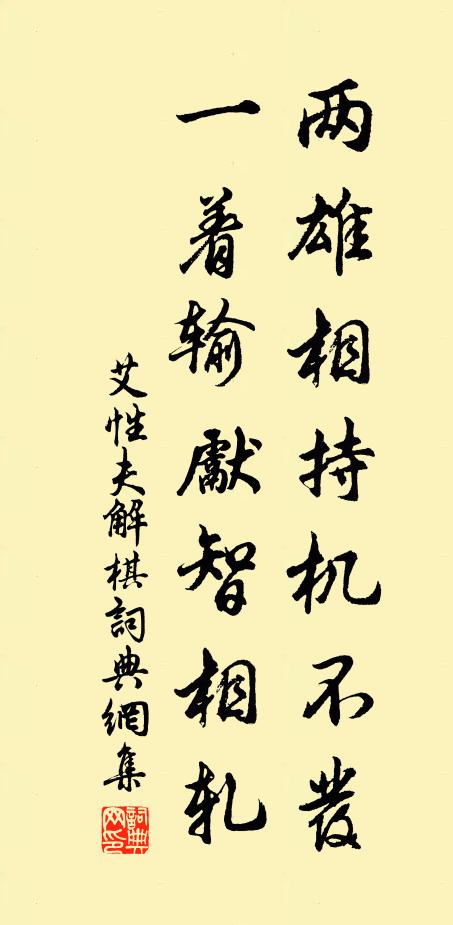 两雄相持机不发
一着输献智相轧
艾性夫解棋詞典網集
詞典网印